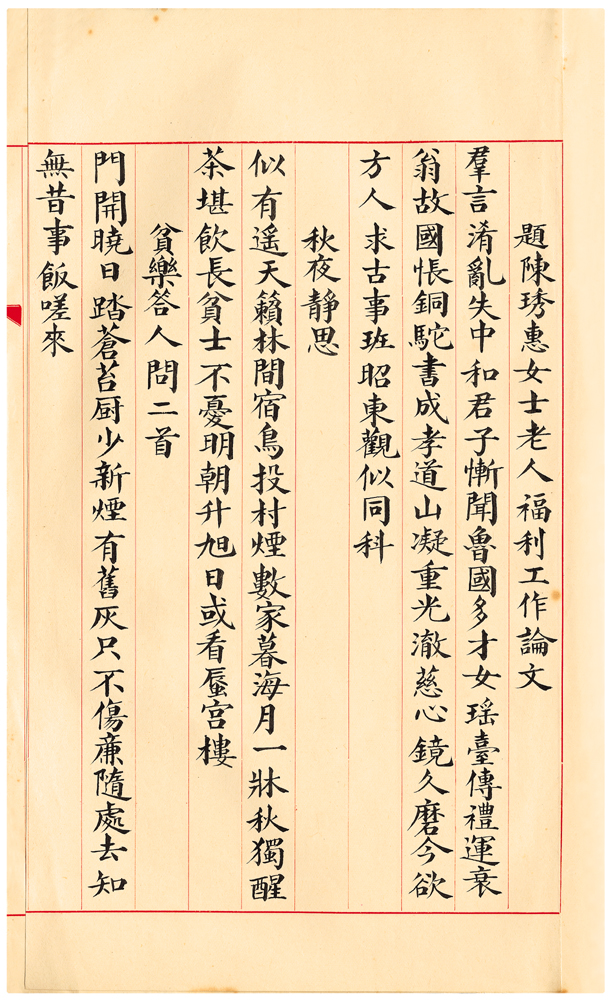 題陳琇惠女士老人福利工作論文
羣言淆亂失中和君子慚聞魯國多才女瑶臺傳禮運衰
翁故國悵銅駝書成孝道山凝重光澈慈心鏡久磨今欲
方人求古事班昭東觀似同科
秋夜靜思
似有遥天籟林間宿鳥投村煙數家暮海月一牀秋獨醒
茶堪飲長貧士不憂明朝升旭日或看蜃宫樓
貧樂答人問二首
門開曉日踏蒼苔厨少新煙有舊灰只不傷廉隨處去知
無昔事飯嗟來